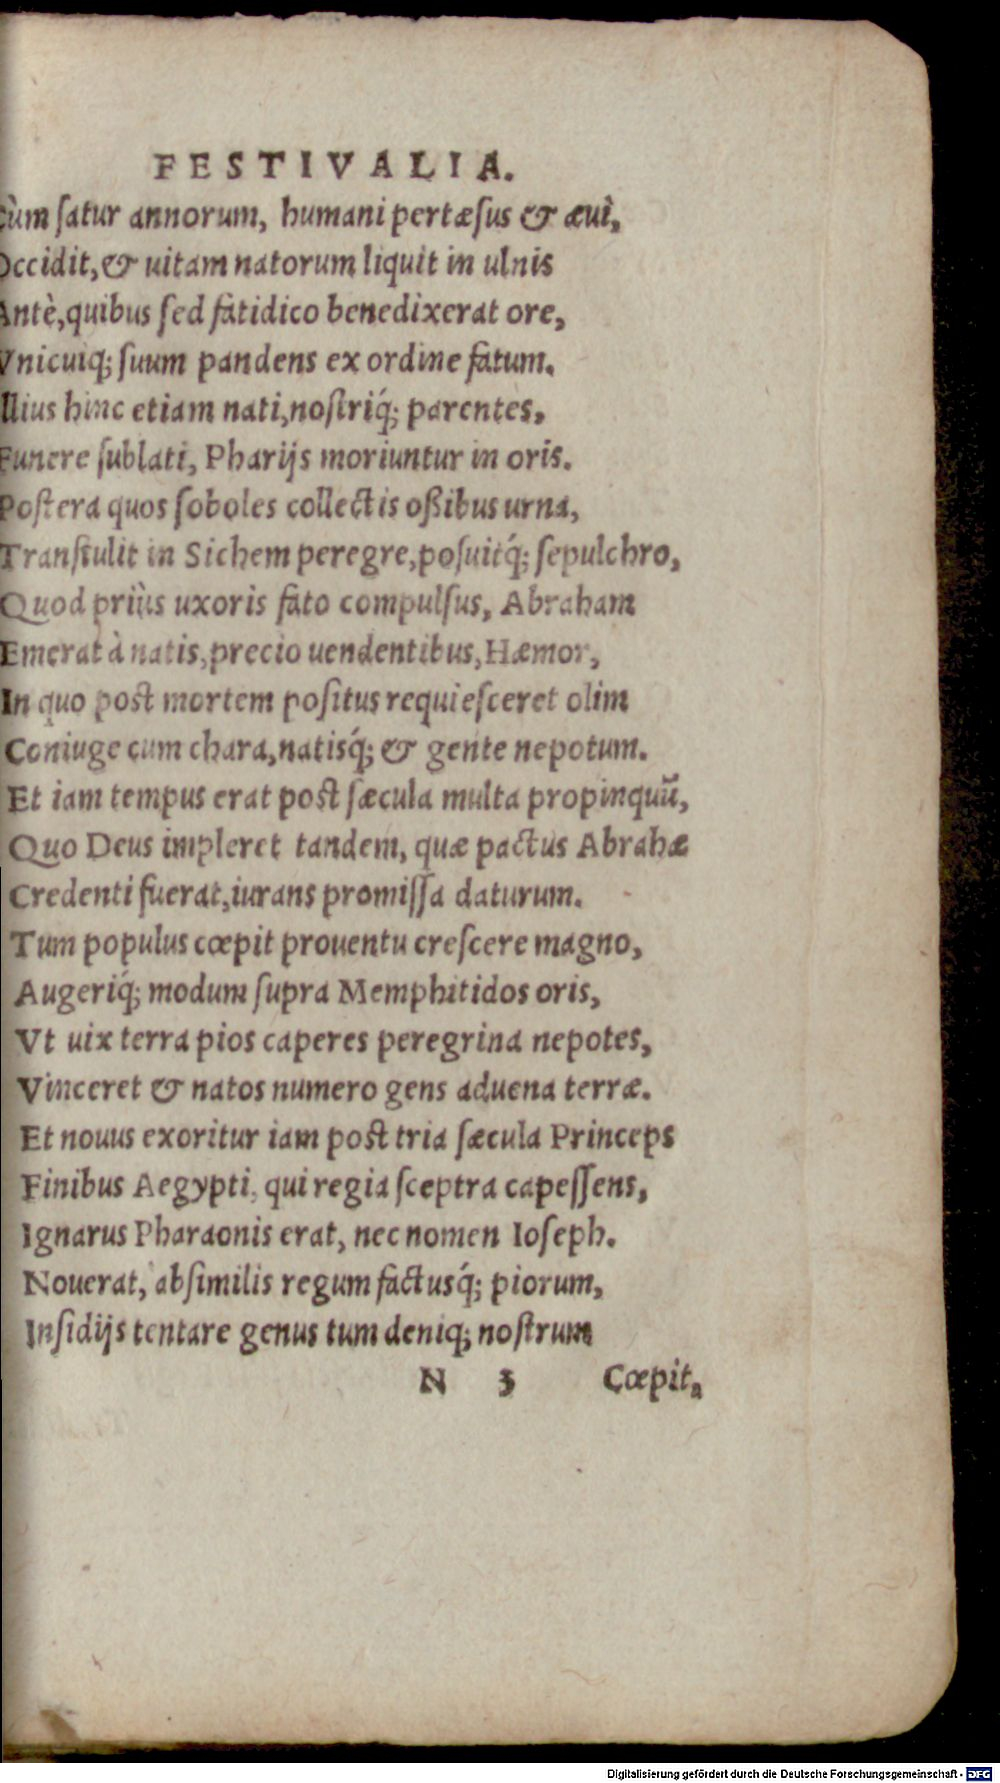 FESTIVALIA.
Cùm ſatur annorum, humani pertæſus & æui,
Occidit, & uitam natorum liquit in ulnis
Antè, quibus ſed fatidico benedixerat ore,
Vnicuiq; ſuum pandens ex ordine fatum.
Illius hinc etiam nati, noſtriq́; parentes,
Funere ſublati, Pharijs moriuntur in oris.
Poſtera quos ſoboles collectis oßibus urna,
Tranſtulit in Sichem peregre, poſuitq́; ſepulchro,
Quod priùs uxoris fato compulſus, Abraham
Emerat à natis, precio uendentibus, Hæmor,
In quo post mortem poſitus requieſceret olim
Coniuge cum chara, natisq́; & gente nepotum.
Et iam tempus erat post ſæcula multa propinquũ,
Quo Deus impleret tandem, quæ pactus Abrahæ
Credenti fuerat, iurans promiſſa daturum.
Tum populus cœpit prouentu creſcere magno,
Augeriq́; modum ſupra Memphitidos oris,
Vt uix terra pios caperes peregrina nepotes,
Vinceret & natos numero gens aduena terræ.
Et nouus exoritur iam post tria ſæcula Princeps
Finibus Aegypti, qui regia ſceptra capeſſens,
Ignarus Pharaonis erat, nec nomen Ioſeph.
Nouerat, abſimilis regum factusq́; piorum,
Inſidijs tentare genus tum deniq; noſtrum
N 3 Cœpit,
Digitalisierung gefördert durch die Deutsche Forschungsgemeinschaft - DFG